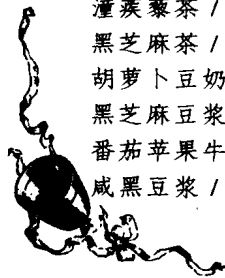 潼蒺藜茶 /
黑芝麻茶 /
胡萝卜豆奶
黑芝麻豆浆
番茄苹果牛
咸黑豆浆 /